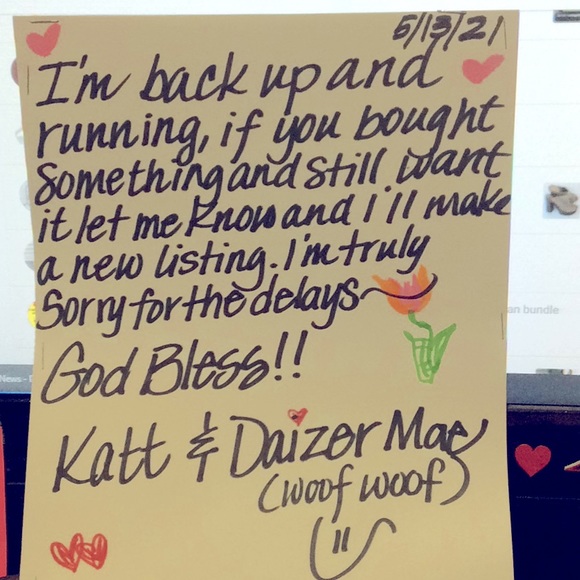 5/13/21
I'm back up and
running, if you bought
Something and still want
it let me know and I'll make
a new listing. I'm truly
Sorry for the delays
God Bless!!
Katt & Daizer Mae
(woof woof)
an bundle
News -